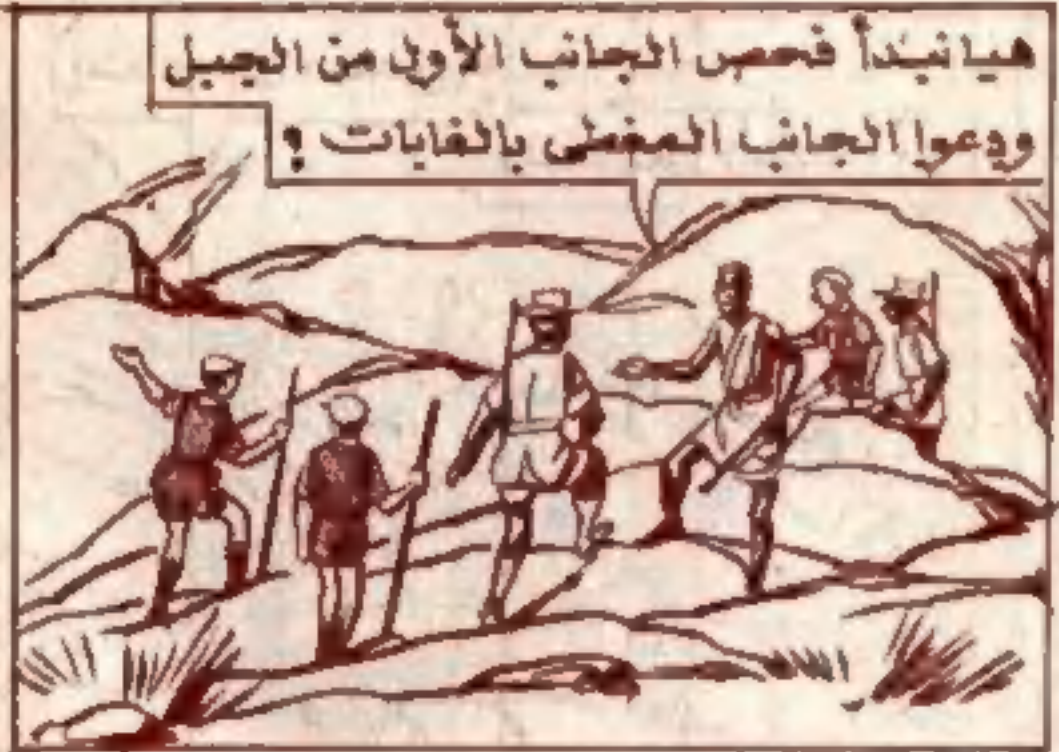 هيا نبدأ فحص الجانب الأول من الجبل
ودعوا الجانب المغطى بالغابات !